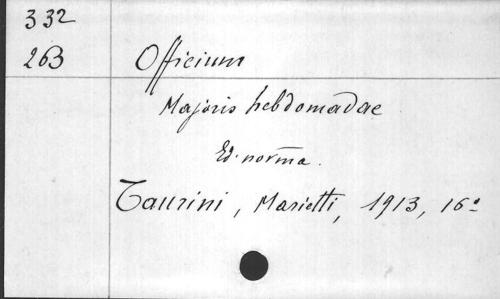 332
263 Officium
Majoris hebdomadae
Ed. norma.
Taurini, Marietti, 1913, 16º